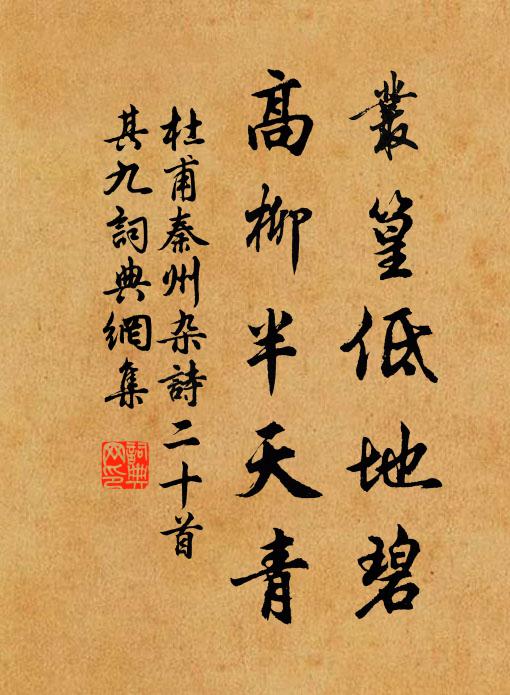 叢篁低地碧
高柳半天青
杜甫秦州杂詩二十首
其九詞典網集
詞典网印